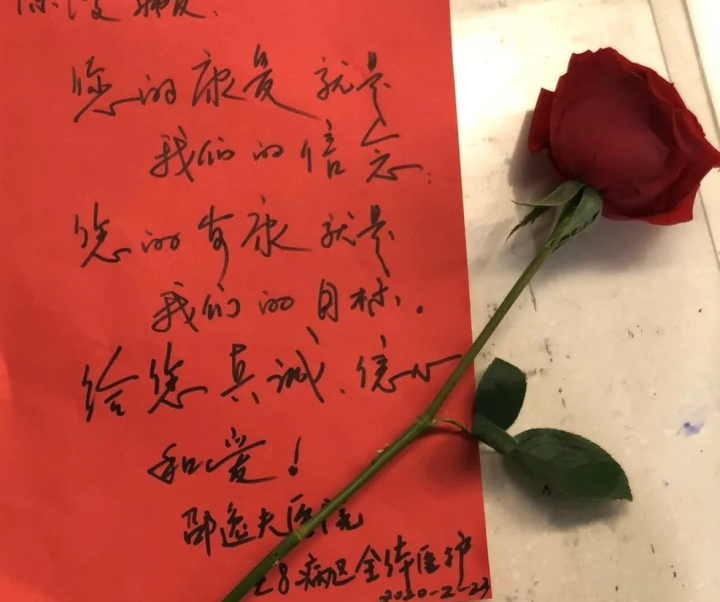 您的康复就是
我们的信念
您的安康就是
我们的目标。
给您真诚、信心
和爱!
邵逸夫医院
病区全体医护
2020-2-23